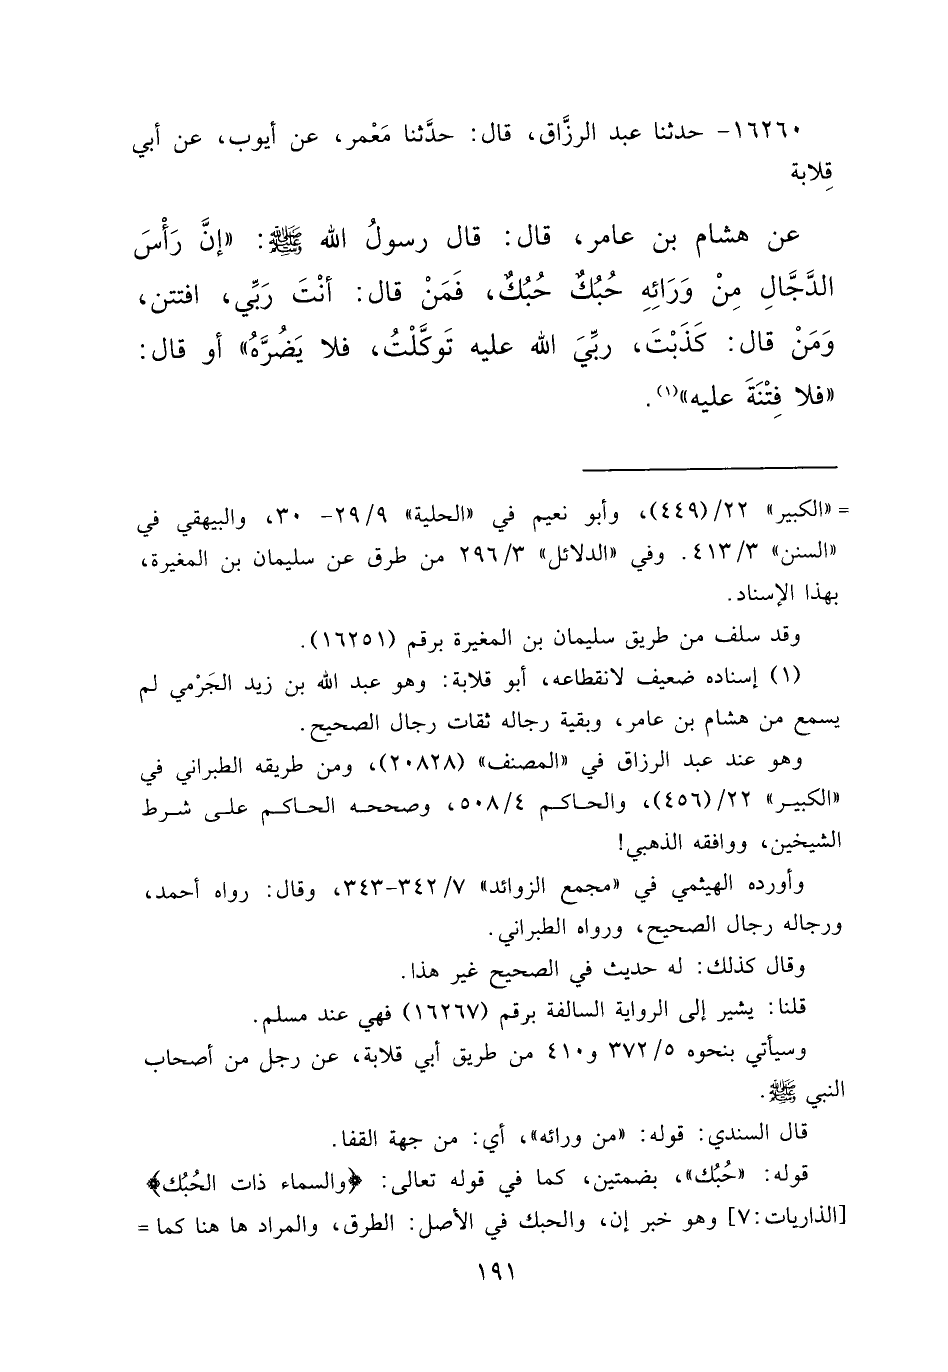 ١٦٢٦٠- حدثنا عبد الرزَّاق، قال: حدَّثنا مَعْمر، عن أيوب، عن أبي
قِلابة
عن هشام بن عامر، قال: قال رسولُ الله ﷺ: «إنَّ رَأْسَ
الدَّجَّالِ مِنْ وَرَائِهِ حُبُكٌ حُبُكٌ، فَمَنْ قال: أنْتَ رَبِّي، افتتن،
وَمَنْ قال: كَذَبْتَ، ربِّيَ الله عليه تَوكَّلْتُ، فلا يَضُرَّهُ» أو قال:
«فلا فِتْنَةَ عليه»(١).
= «الكبير» ٢٢/(٤٤٩)، وأبو نعيم في «الحلية» ٢٩/٩- ٣٠، والبيهقي في
«السنن» ٤١٣/٣. وفي «الدلائل» ٢٩٦/٣ من طرق عن سليمان بن المغيرة،
بهذا الإسناد.
وقد سلف من طريق سليمان بن المغيرة برقم (١٦٢٥١).
(١) إسناده ضعيف لانقطاعه، أبو قلابة: وهو عبد الله بن زيد الجَرْمي لم
يسمع من هشام بن عامر، وبقية رجاله ثقات رجال الصحيح.
وهو عند عبد الرزاق في «المصنف» (٢٠٨٢٨)، ومن طريقه الطبراني في
«الكبير» ٢٢/(٤٥٦)، والحاكم ٥٠٨/٤، وصححه الحاكم على شرط
الشيخين، ووافقه الذهبي!
وأورده الهيثمي في «مجمع الزوائد» ٣٤٢/٧-٣٤٣، وقال: رواه أحمد،
ورجاله رجال الصحيح، ورواه الطبراني.
وقال كذلك: له حديث في الصحيح غير هذا.
قلنا: يشير إلى الرواية السالفة برقم (١٦٢٦٧) فهي عند مسلم.
وسيأتي بنحوه ٣٧٢/٥ و٤١٠ من طريق أبي قلابة، عن رجل من أصحاب
النبي ﷺ.
قال السندي: قوله: «من ورائه»، أي: من جهة القفا.
قوله: «حُبُك»، بضمتين، كما في قوله تعالى: ﴿والسماء ذات الحُبُك﴾
[الذاريات:٧] وهو خبر إن، والحبك في الأصل: الطرق، والمراد ها هنا كما =
١٩١